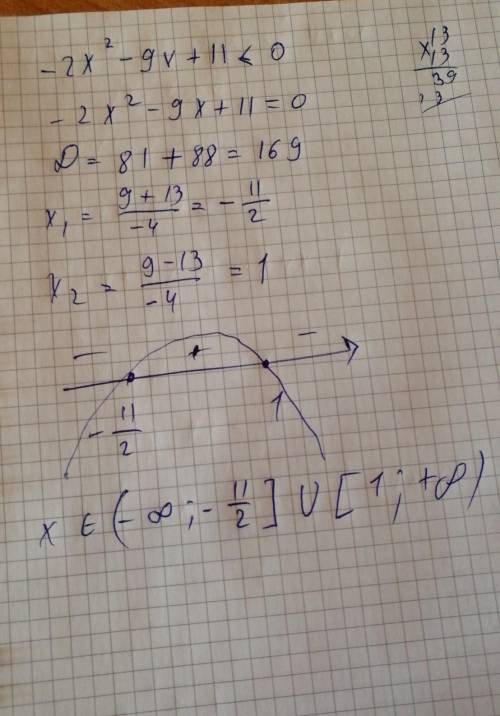 -2x² - 9x + 11 < 0
-2x² - 9x + 11 = 0
D = 81 + 88 = 169
x₁ = (9 + 13)/(-4) = - 11/2
x₂ = (9 - 13)/(-4) = 1
- + -
- 11/2 1
x ∈ (-∞; - 11/2] ∪ [1; +∞)
13
x 13
39